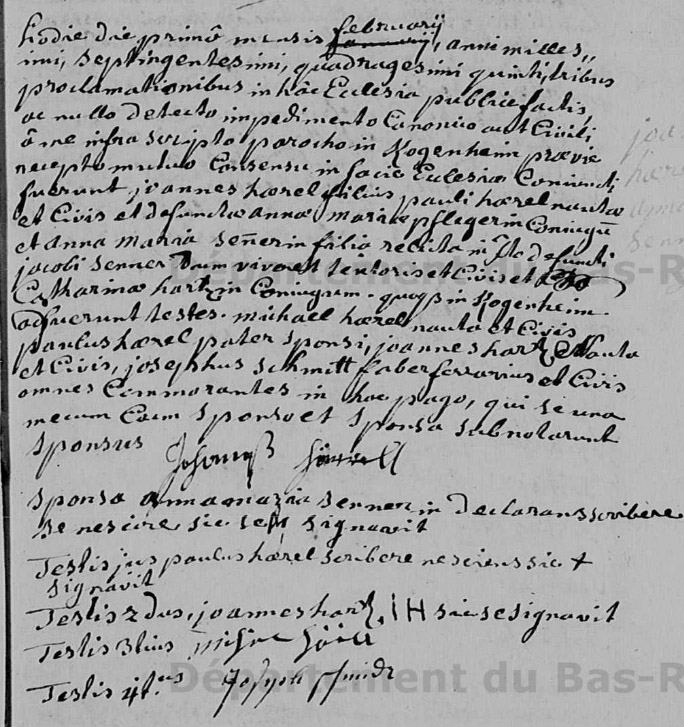 hodie die primâ mensis februarij
januarij, anni milles,,
imi, septingentesimi, quadragesimi quinti, tribus
proclamationibus in hâc Eclesia publice factis,
ac nullo detecto impedimento Canonico aut Civili
â me infra scripto parocho in Kogenheim prævie
recepto mutuo Consensu in facie Eclesiæ Coniuncti
fuerunt joannes hærel filius pauli hærel nautæ
et Civis et defunctæ annæ mariæ pflegerin Coniugū
et anna maria señerin filia relicta defuncti
jacobi senner dum viveret textoris et Civis et
Catharinæ hartzin Coniugum. in Kogenheim.
adfuerunt testes. michael hærel nauta et Civis
paulus hærel pater sponsi, joannes hartz Nauta
et Civis, josephus schmitt faber ferrarius et Civis
omnes Commorantes in hoc pago, qui se una
mecum Cum sponso et sponsa subnotarunt
sponsus Johannes
sponsa anna maria sennerin declarans scribere
se nescire sic se signavit
Testis jus paulus hærel scribere nesciens sic +
signavit
Testis 2dus, joannes hartz, IH sic se signavit
Testis 3tius
Testis 4tus Joseph
Département du Bas-R
Département du Bas-R